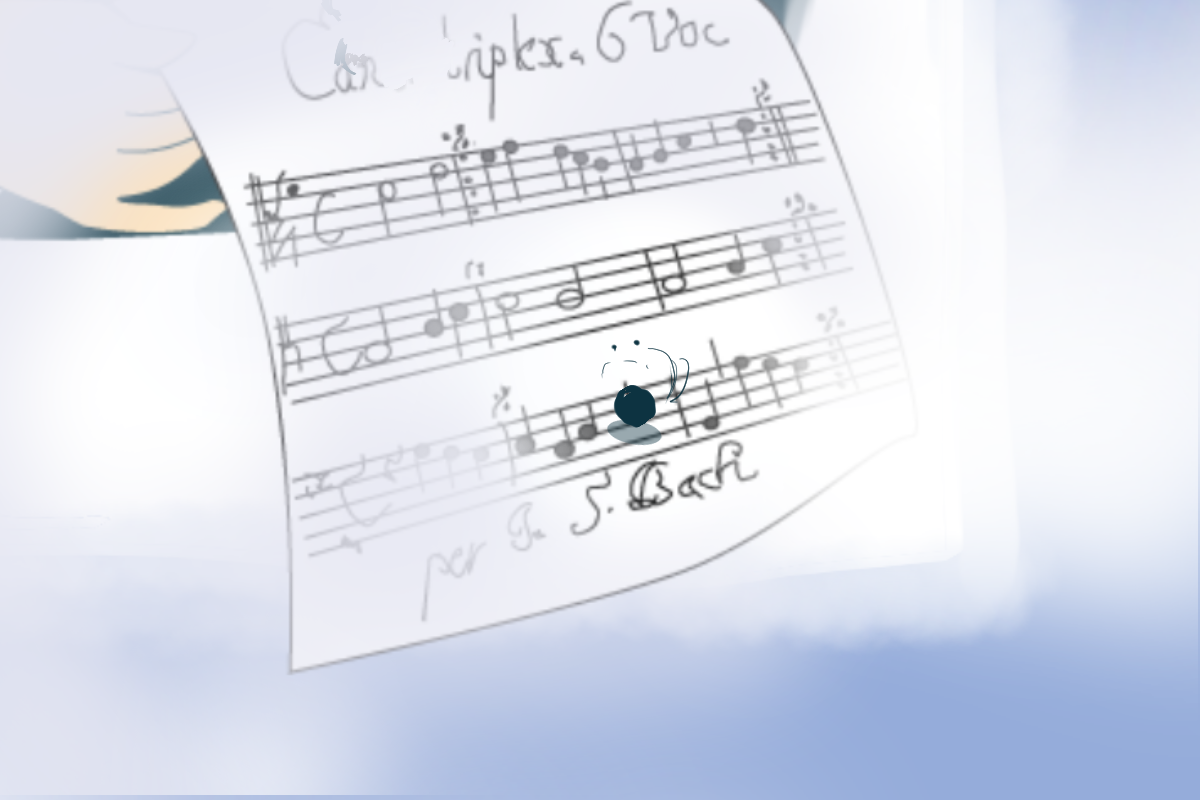 Can riplex a 6 Voc
per J. S. Bach